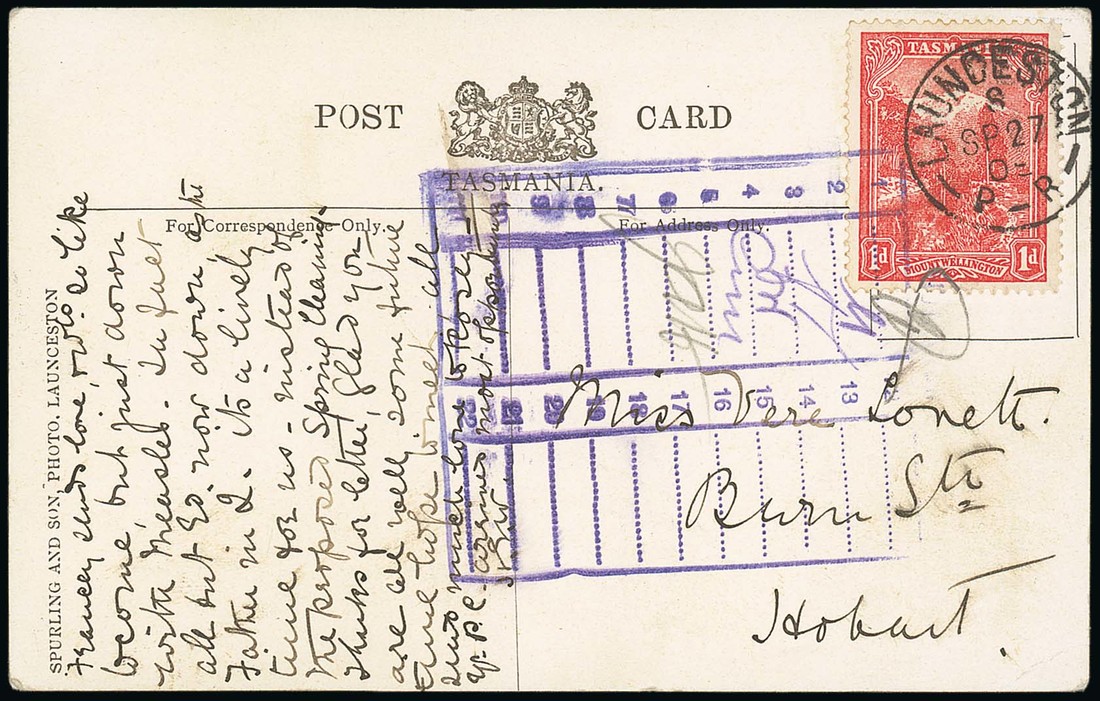 POST CARD
TASMANIA.
For Correspondence Only.
For Address Only.
SPURLING AND SON, PHOTO, LAUNCESTON
TASMANIA
1d 1d
MOUNT WELLINGTON
LAUNCESTON
8
SP 27
05
P-R
1
2
3
4
5
6
7
8
9
13
14
15
16
17
18
19
20
21
22
Miss Vere Lovett.
Burn Str
Hobart.
sends love, wd so like
to come, but just down
with Measles. In fact
all but 20 now down
Father in 2. its a lively
time for us - instead of
the proposed Spring Cleaning.
Thanks for letter, glad you
are all well, some future
time hope to meet all
much love
P.C. arrived most